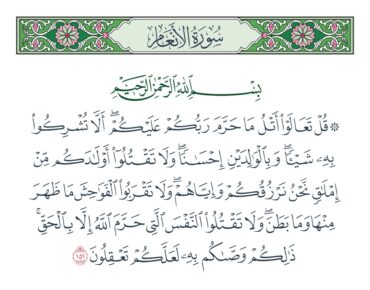 سُورَةُ الأَنْعَامِ
بِسْمِ اللَّهِ الرَّحْمَٰنِ الرَّحِيمِ
۞ قُلْ تَعَالَوْا۟ أَتْلُ مَا حَرَّمَ رَبُّكُمْ عَلَيْكُمْ ۖ أَلَّا تُشْرِكُوا۟
بِهِۦ شَيْـًٔا ۖ وَبِٱلْوَٰلِدَيْنِ إِحْسَـٰنًا ۖ وَلَا تَقْتُلُوٓا۟ أَوْلَـٰدَكُم مِّنْ
إِمْلَـٰقٍ ۖ نَّحْنُ نَرْزُقُكُمْ وَإِيَّاهُمْ ۖ وَلَا تَقْرَبُوا۟ ٱلْفَوَٰحِشَ مَا ظَهَرَ
مِنْهَا وَمَا بَطَنَ ۖ وَلَا تَقْتُلُوا۟ ٱلنَّفْسَ ٱلَّتِى حَرَّمَ ٱللَّهُ إِلَّا بِٱلْحَقِّ ۚ
ذَٰلِكُمْ وَصَّىٰكُم بِهِۦ لَعَلَّكُمْ تَعْقِلُونَ ١٥١